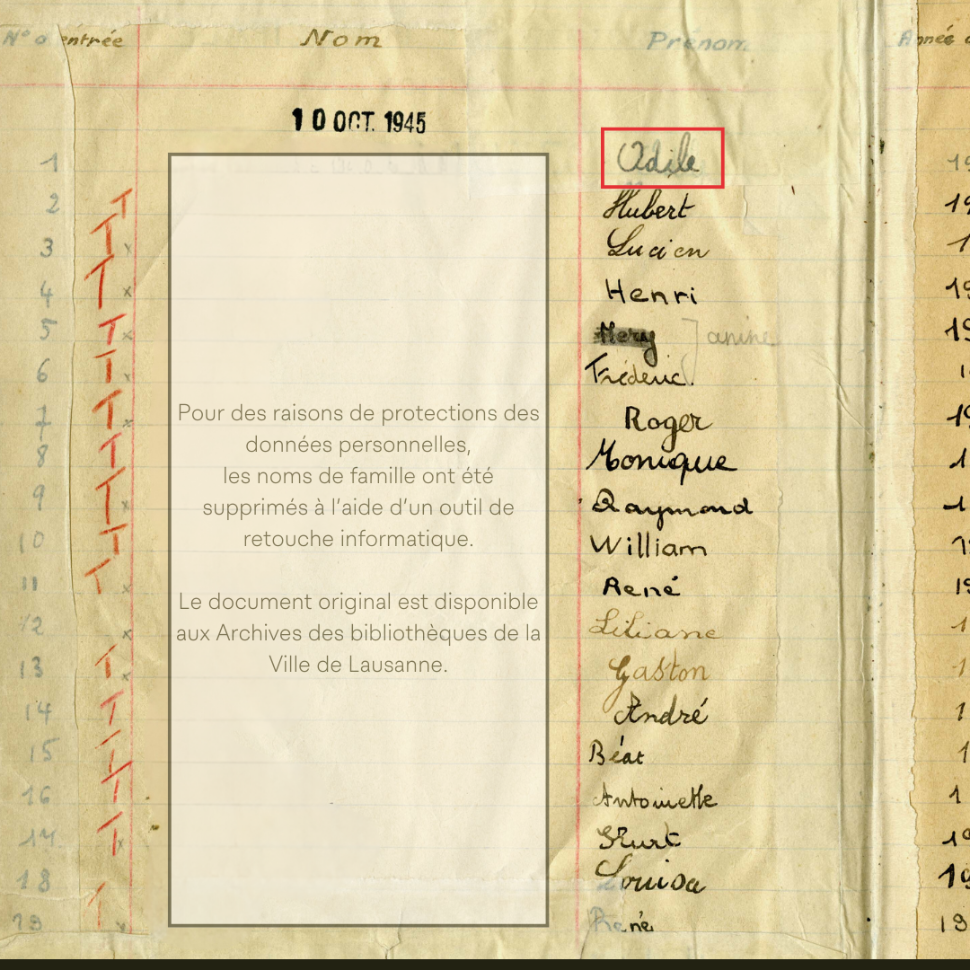 N° d'entrée Nom Prénom Année d
10 OCT. 1945
1 Odile 19
2 T Hubert 19
3 T x Lucien 1
4 T x Henri 19
5 T x Janine 19
6 T x Fréderic. 1
7 T x Roger 19
8 T Monique 1
9 T x Raymond 1
10 T William 1
11 T x René 19
12 x Liliane 1
13 T x Gaston 1
14 T André 1
15 T Béat 1
16 T Antoinette 1
17 T x Kurt 19
18 Louisa 19
19 T x René 19
Pour des raisons de protections des
données personnelles,
les noms de famille ont été
supprimés à l'aide d'un outil de
retouche informatique.
Le document original est disponible
aux Archives des bibliothèques de la
Ville de Lausanne.